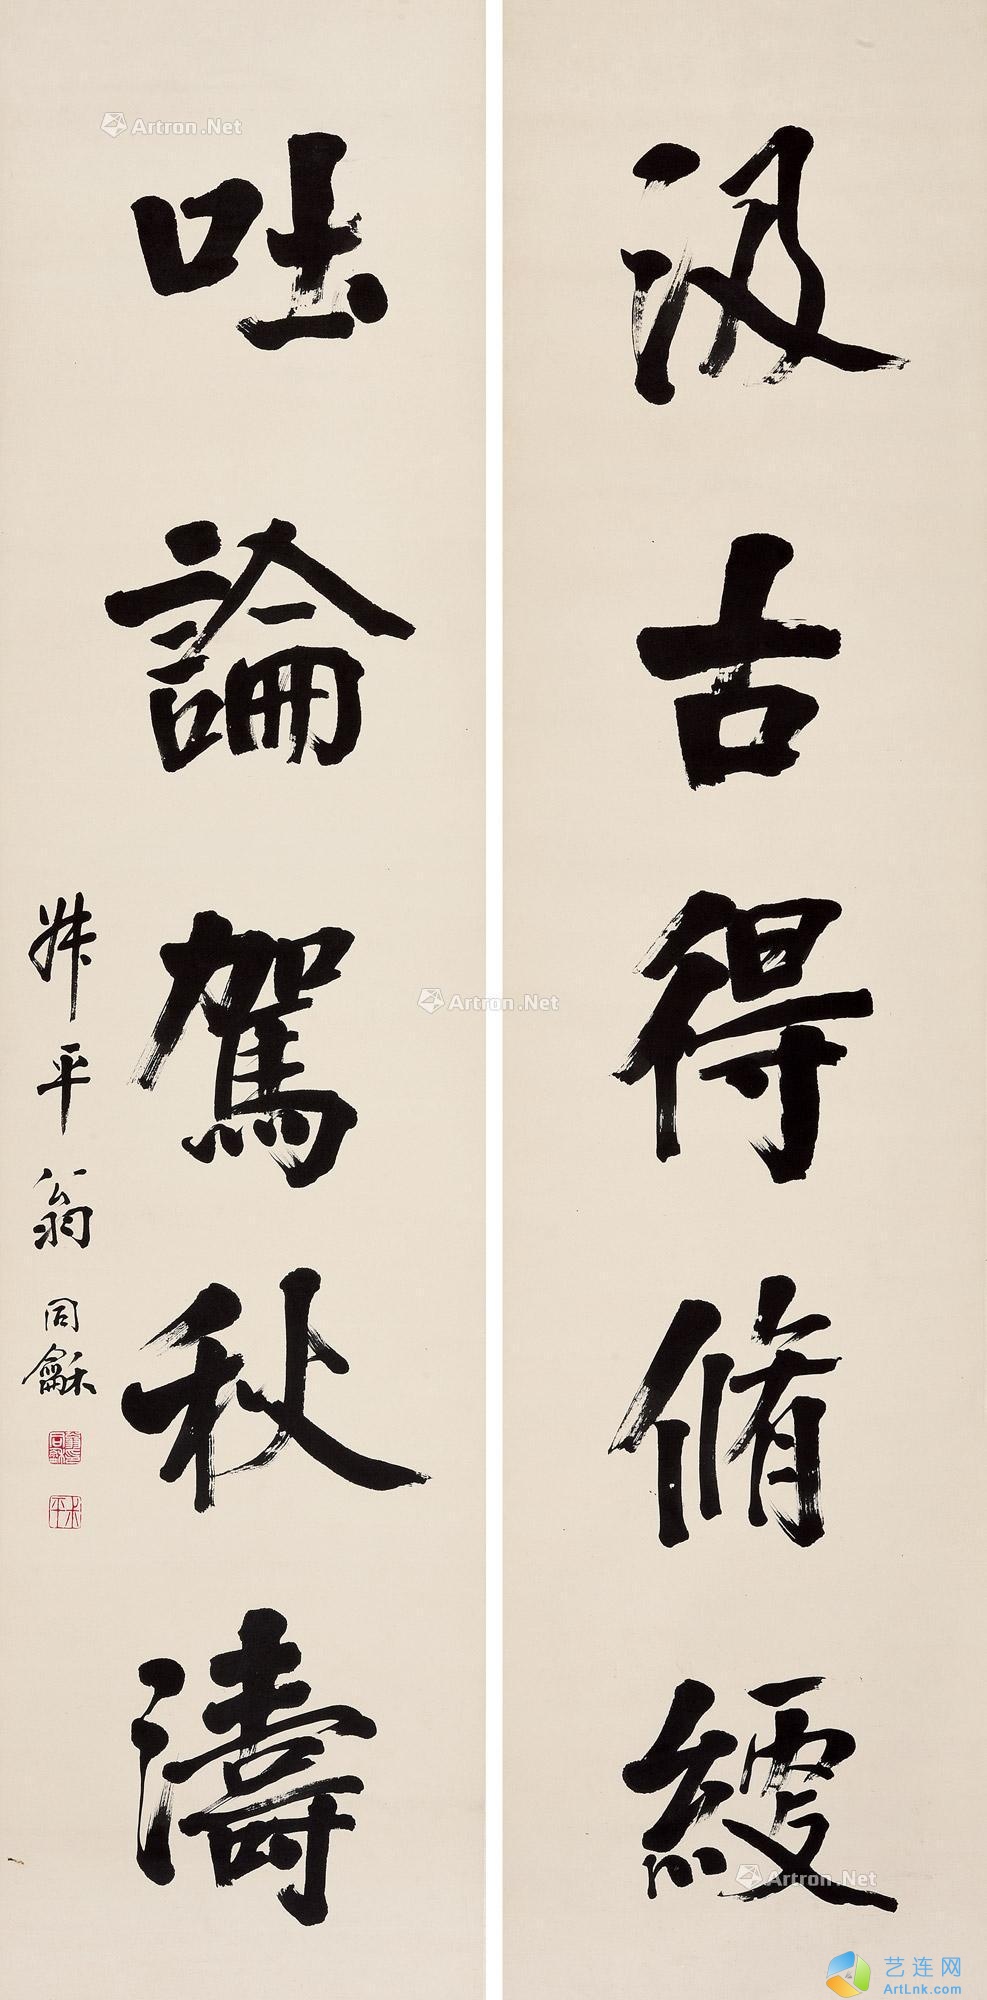 汲古得脩綆
吐論駕秋濤
叔平翁同龢
翁同龢印
叔平
Artron.Net
Artron.Net
Artron.Net
艺连网
ArtLnk.com